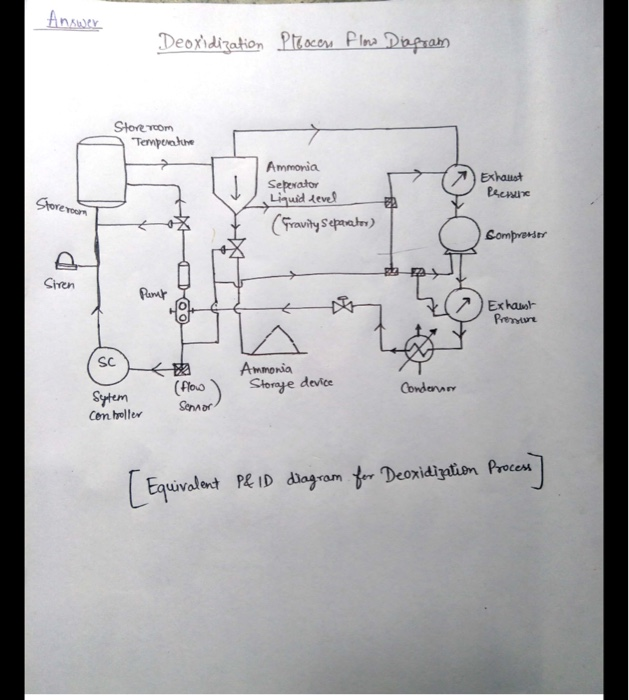 Answer
Deoxidization Process Flow Diagram
Storeroom
Temperature
Ammonia
Seperator
Liquid level
(Gravity Seperator)
Exhaust
Pressure
Storeroom
Compressor
Siren
Pump
Exhaust
Pressure
SC
Sytem
Controller
(flow
Sensor)
Ammonia
Storage device
Condensor
[Equivalent P&ID diagram for Deoxidization Process]